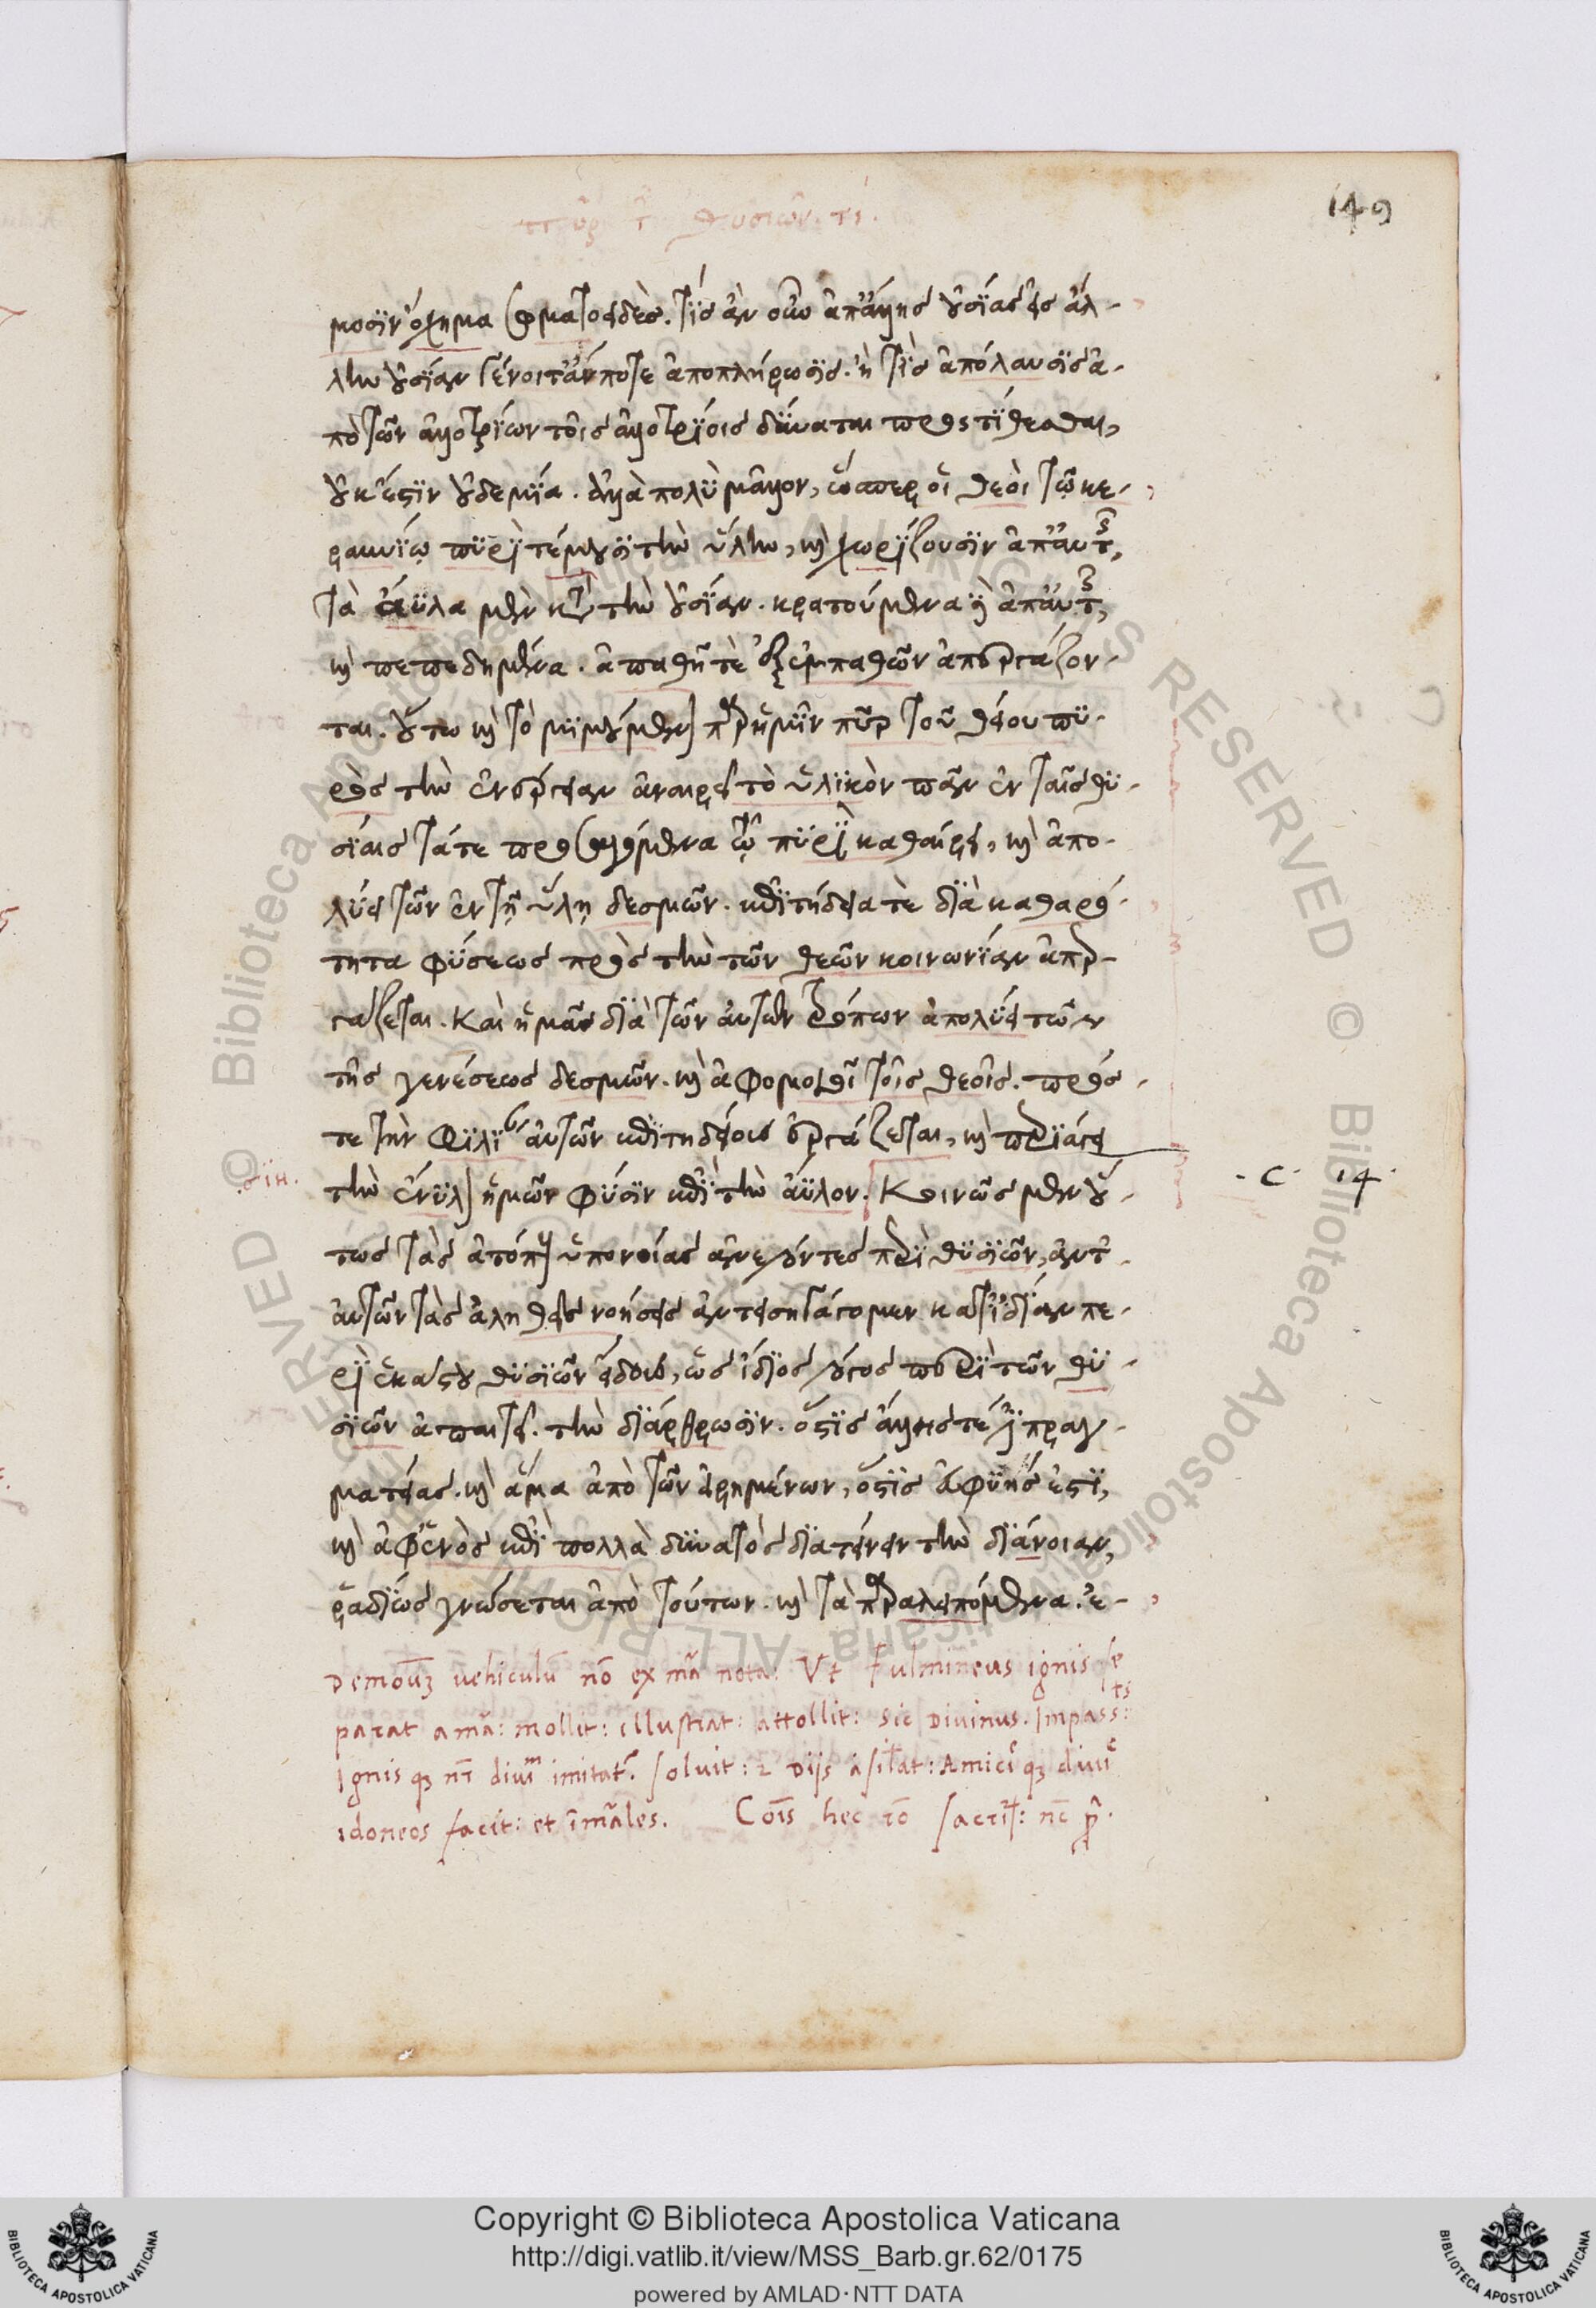 πῦρ τ θυσιῶν. τί.
149
μοσϊν ὄχημα σωματοειδὲσ. τίσ ἂν οὖν ἀπἄλλησ οὐσίασ εἰσ ἀλ-
λην οὐσίαν γένοιτἄν ποτε ἀποπλήρωσϊσ. ἢ τίσ ἀπόλαυσϊσ ἀ-
πὸ τῶν ἀλλοτρίων τοῖσ ἀλλοτρίοισ δύναται προστίθεσθαι,
οὐκ ἔστϊν οὐδεμία. ἀλλὰ πολὺ μᾶλλον, ὥσπερ οἱ θεοὶ τῷ κε-
ραυνίῳ πυρὶ τέμνουσϊ τὴν ὕλην, καὶ χωρίζουσϊν ἀπ' αὐτῆς,
τὰ ἄϋλα μὲν κατὰ τὴν οὐσίαν. κρατούμενα δὲ ἀπ' αὐτῆς,
καὶ πεπεδημένα. ἀπαθῆ τὲ ἐξ ἐμπαθῶν ἀπεργάζον-
ται. οὕτω καὶ τὸ μιμούμενον παρ' ἡμῖν πῦρ τοῦ θείου πυ-
ρὸσ τὴν ἐνέργειαν ἀναιρεῖ τὸ ὑλικὸν πᾶν ἐν ταῖσ θυ-
σίαισ τά τε προσαγόμενα τῷ πυρὶ καθαίρει, καὶ ἀπο-
λύει τῶν ἐν τῇ ὕλῃ δεσμῶν. ἐπιτήδεια τὲ διὰ καθαρό-
τητα φύσεωσ πρὸσ τὴν τῶν θεῶν κοινωνίαν ἀπερ-
γάζεται. Καὶ ἡμᾶσ διὰ τῶν αὐτῶν τρόπων ἀπολύει τῶν
τῆσ γενέσεωσ δεσμῶν. καὶ ἀφομοιοῖ τοῖσ θεοῖσ. πρόσ
τε τὴν φιλίαν αὐτῶν ἐπιτηδείουσ ἐργάζεται, καὶ περιάγει
τὴν ἔνυλον ἡμῶν φύσιν ἐπὶ τὴν ἄϋλον. Κοινῶσ μὲν οὕ-
.σϊη.
.C. 14
τωσ τὰσ ἀτόπουσ ὑπονοίασ ἀνελόντεσ περὶ θυσιῶν, ἀντ'
αὐτῶν τὰσ ἀληθεῖσ νοήσεισ ἀντεισηγάγομεν κατ' ἰδίαν πε-
ρὶ ἑκάστου θυσιῶν εἴδουσ, ὡσ ἴδιοσ λόγοσ ὁ περὶ τῶν θυ-
σιῶν ἀπαιτεῖ. τὴν διάρθρωσιν. ὅστισ ἄλλησ τέ ἐστι πραγ-
ματείασ. καὶ ἅμα ἀπὸ τῶν εἰρημένων, ὅστισ εὐφυήσ ἐστϊ,
καὶ ἀφ' ἑνὸσ ἐπὶ πολλὰ δυνατὸσ διατείνειν τὴν διάνοιαν,
ῥαδίωσ γνώσεται ἀπὸ τούτων. καὶ τὰ παραλειπόμενα. ἐ-
Demouꝫ uehiculũ nõ ex mã nota: Vt fulmineus ignis se
parat a mã: mollit: illustrat: attollit: sic Diuinus. Impass:ts
Ignis qꝫ nr̃ diuĩ imitat~. soluit: 2 Dijs asi̾lat: Amicĩ qꝫ diuĩ
idoneos facit: et ĩmãles. Cõis hec rõ sacrif: nc̃ pr̃.
Copyright © Biblioteca Apostolica Vaticana
http://digi.vatlib.it/view/MSS_Barb.gr.62/0175
powered by AMLAD · NTT DATA